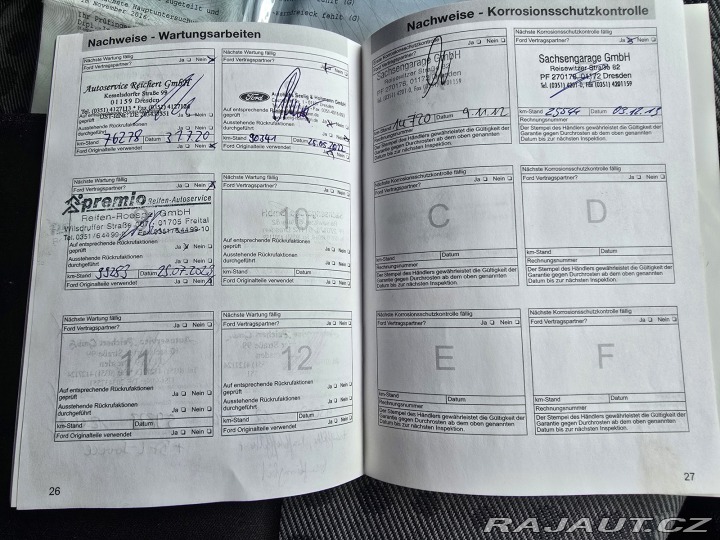 Nachweise - Wartungsarbeiten
Nächste Wartung fällig
Ford Vertragspartner? Ja Nein
Autoservice Reichert GmbH
Kesselsdorfer Straße 99
01159 Dresden
Ausstehende Rückrufaktionen
durchgeführt Ja Nein
km-Stand 76278 Datum
Ford Originalteile verwendet Ja Nein
Nächste Wartung fällig
Ford Vertragspartner? Ja Nein
Ford
Ausstehende Rückrufaktionen
durchgeführt Ja Nein
km-Stand 90341 Datum
Ford Originalteile verwendet Ja Nein
Nächste Wartung fällig
Ford Vertragspartner? Ja Nein
premio Reifen-Autoservice
Wilsdruffer Straße 01705 Freital
Auf entsprechende Rückrufaktionen
geprüft Ja Nein
Ausstehende Rückrufaktionen
durchgeführt Ja Nein
km-Stand 99253 Datum 25.07.2023
Ford Originalteile verwendet Ja Nein
Nächste Wartung fällig
Ford Vertragspartner? Ja Nein
10
Auf entsprechende Rückrufaktionen
geprüft Ja Nein
Ausstehende Rückrufaktionen
durchgeführt Ja Nein
km-Stand Datum
Ford Originalteile verwendet Ja Nein
Nächste Wartung fällig
Ford Vertragspartner? Ja Nein
11
Auf entsprechende Rückrufaktionen
geprüft Ja Nein
Ausstehende Rückrufaktionen
durchgeführt Ja Nein
km-Stand Datum
Ford Originalteile verwendet Ja Nein
Nächste Wartung fällig
Ford Vertragspartner? Ja Nein
12
Auf entsprechende Rückrufaktionen
geprüft Ja Nein
Ausstehende Rückrufaktionen
durchgeführt Ja Nein
km-Stand Datum
Ford Originalteile verwendet Ja Nein
26
Nachweise - Korrosionsschutzkontrolle
Nächste Korrosionsschutzkontrolle fällig
Ford Vertragspartner? Ja Nein
Sachsengarage GmbH
Reisewitzer Straße 82
PF 270176, 01172 Dresden
km-Stand 14720 Datum 9.11.12
Rechnungsnummer
Der Stempel des Händlers gewährleistet die Gültigkeit der
Garantie gegen Durchrosten ab dem oben genannten
Datum bis zur nächsten Inspektion.
Nächste Korrosionsschutzkontrolle fällig
Ford Vertragspartner? Ja Nein
Sachsengarage GmbH
Reisewitzer Straße 82
PF 270176, 01172 Dresden
km-Stand 25544 Datum 03.12.13
Rechnungsnummer
Der Stempel des Händlers gewährleistet die Gültigkeit der
Garantie gegen Durchrosten ab dem oben genannten
Datum bis zur nächsten Inspektion.
Nächste Korrosionsschutzkontrolle fällig
Ford Vertragspartner? Ja Nein
C
km-Stand Datum
Rechnungsnummer
Der Stempel des Händlers gewährleistet die Gültigkeit der
Garantie gegen Durchrosten ab dem oben genannten
Datum bis zur nächsten Inspektion.
Nächste Korrosionsschutzkontrolle fällig
Ford Vertragspartner? Ja Nein
D
km-Stand Datum
Rechnungsnummer
Der Stempel des Händlers gewährleistet die Gültigkeit der
Garantie gegen Durchrosten ab dem oben genannten
Datum bis zur nächsten Inspektion.
Nächste Korrosionsschutzkontrolle fällig
Ford Vertragspartner? Ja Nein
E
km-Stand Datum
Rechnungsnummer
Der Stempel des Händlers gewährleistet die Gültigkeit der
Garantie gegen Durchrosten ab dem oben genannten
Datum bis zur nächsten Inspektion.
Nächste Korrosionsschutzkontrolle fällig
Ford Vertragspartner? Ja Nein
F
km-Stand Datum
Rechnungsnummer
Der Stempel des Händlers gewährleistet die Gültigkeit der
Garantie gegen Durchrosten ab dem oben genannten
Datum bis zur nächsten Inspektion.
27
RAJAUT.CZ